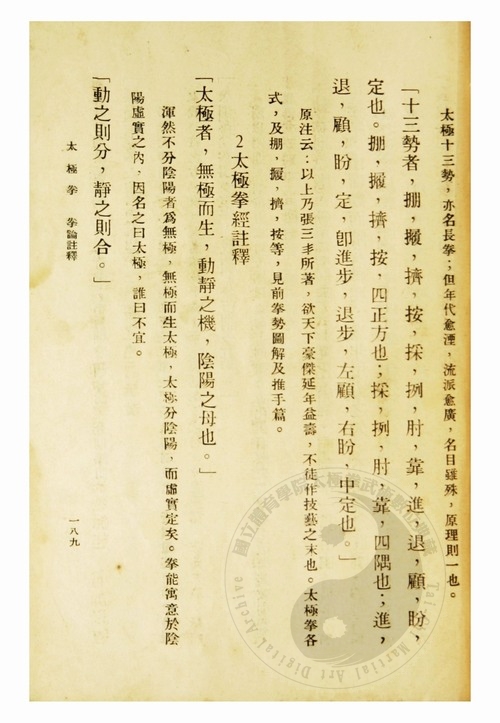 太極十三勢，亦名長拳；但年代愈湮，流派愈廣，名目雖殊，原理則一也。
「十三勢者，掤，攦，擠，按，採，挒，肘，靠，進，退，顧，盼，
定也。掤，攦，擠，按，四正方也；採，挒，肘，靠，四隅也；進，
退，顧，盼，定，卽進步，退步，左顧，右盼，中定也。」
原注云：以上乃張三丰所著，欲天下豪傑延年益壽，不徒作技藝之末也。太極拳各
式，及掤，攦，擠，按等，見前拳勢圖解及推手篇。
2 太極拳經註釋
「太極者，無極而生，動靜之機，陰陽之母也。」
渾然不分陰陽者爲無極，無極而生太極，太極分陰陽，而虛實定矣。拳能寓意於陰
陽虛實之內，因名之曰太極，誰曰不宜。
「動之則分，靜之則合。」
太極拳　拳論註釋
一八九
Taichi Martial Art Digital Archive